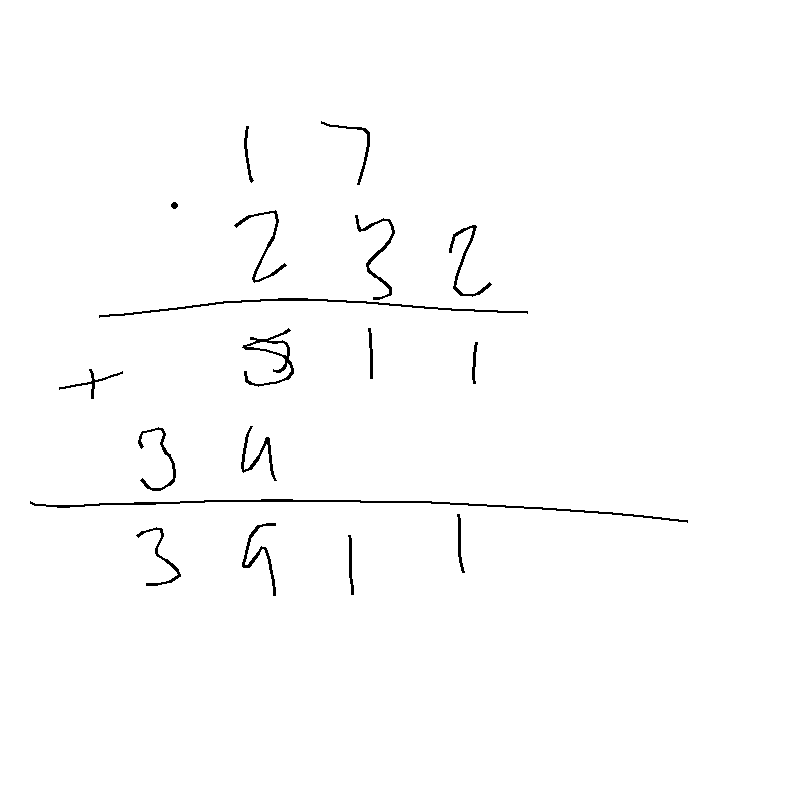 1 7
. 2 3 2
+ 5 1 1
3 4
3 9 1 1